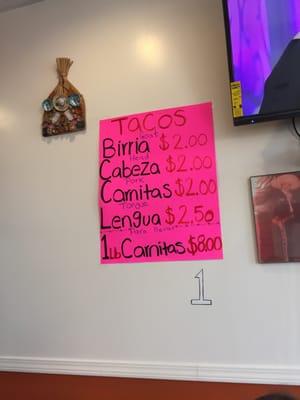 TACOS
Goat
Birria $2.00
Head
Cabeza $2.00
Pork
Carnitas $2.00
Tongue
Lengua $2.50
Para llevar
1Lb Carnitas $8.00
1